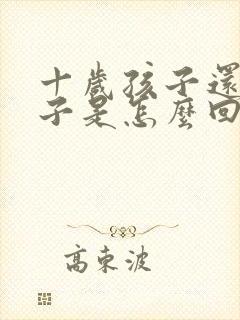 十歲孩子還
子是怎麼回
高東波